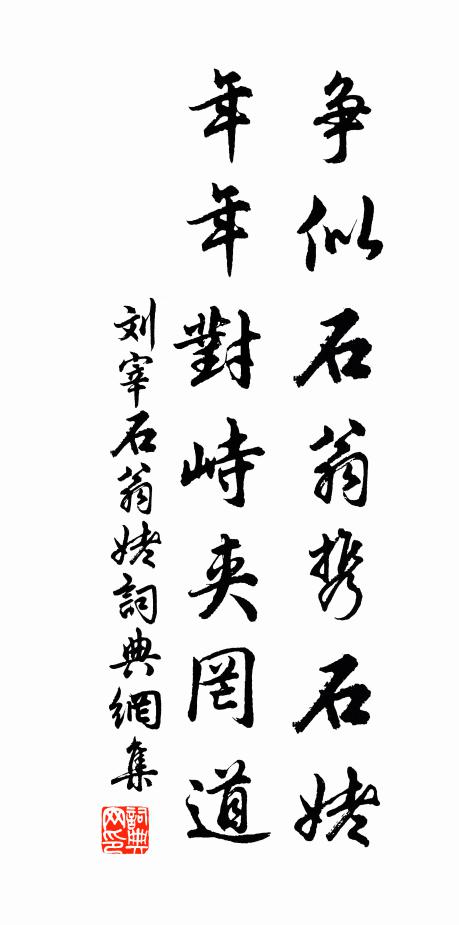 争似石翁携石姥
年年對峙夹罔道
刘宰石翁姥詞典網集
詞典网印